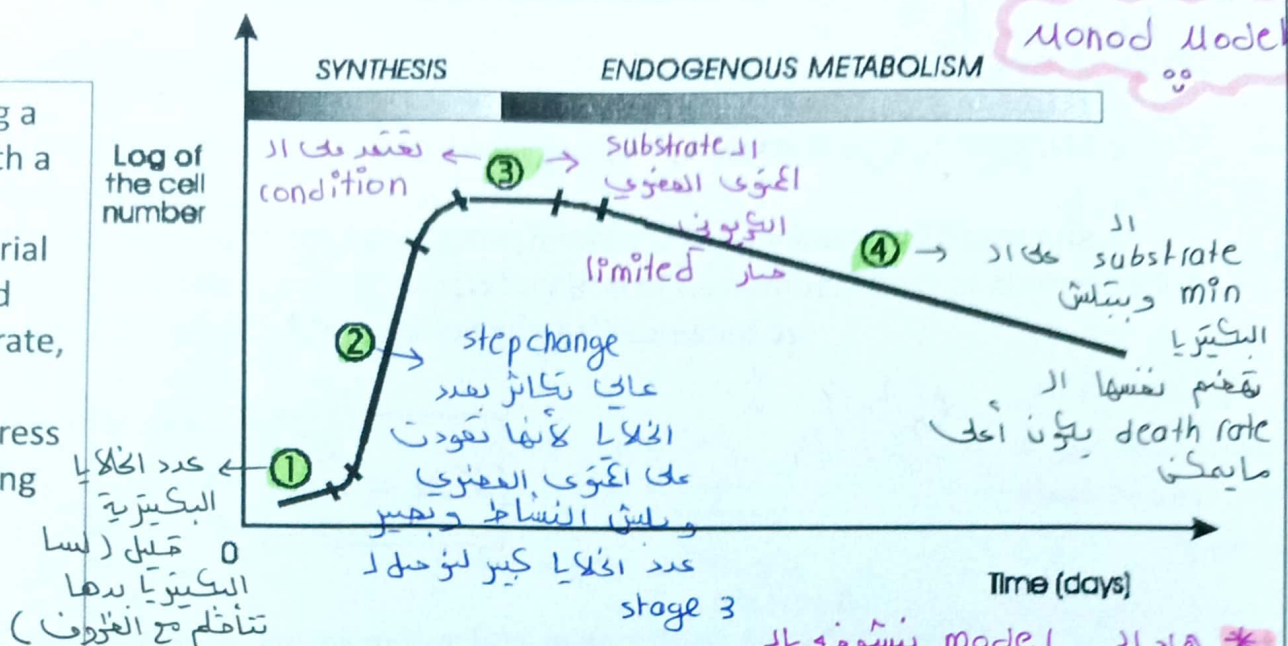 Monod Model
SYNTHESIS
ENDOGENOUS METABOLISM
g a
th a
rial
d
rate,
ress
ng
Log of
the cell
number
تعتمد على ال
condition
3
ال substrate
المحتوى العضوي
الكربوني
صار limited
4
ال
substrate على ال
min وبتبلش
البكتيريا
تهضم نفسها ال
death rate يكون أعلى
ما يمكن
2
step change
عالي تكاثر بعدد
الخلايا لأنها تعودت
على المحتوى العضوي
وبلش النشاط وبصير
عدد الخلايا كبير لنوصل ل
stage 3
1
عدد الخلايا
البكتيرية
قليل (لسا
البكتيريا بدها
تتأقلم مع الظروف)
0
Time (days)
* هاد ال model بنشوفه بال